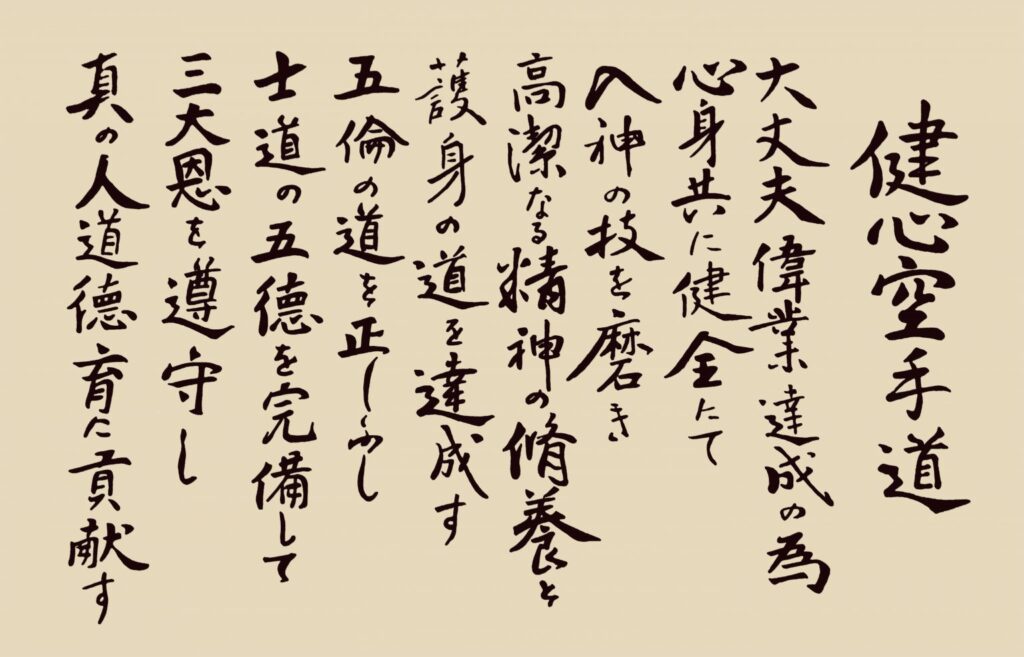 健心空手道
大丈夫偉業達成の為
心身共に健全にて
入神の技を磨き
高潔なる精神の脩養と
護身の道を達成す
五倫の道を正しふし
士道の五德を完備して
三大恩を遵守し
真の人道德育に貢献す